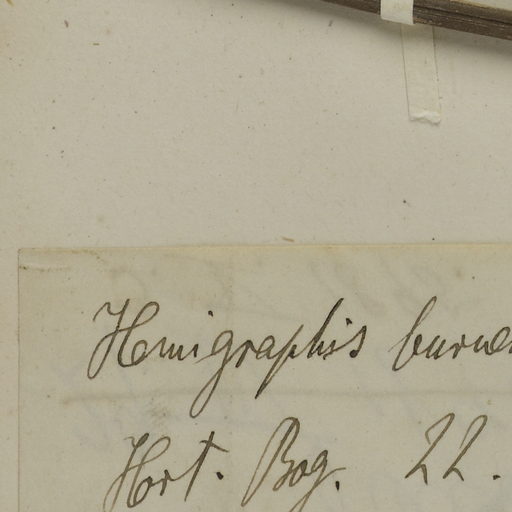 Hemigraphis
Hort. Bog. 22.